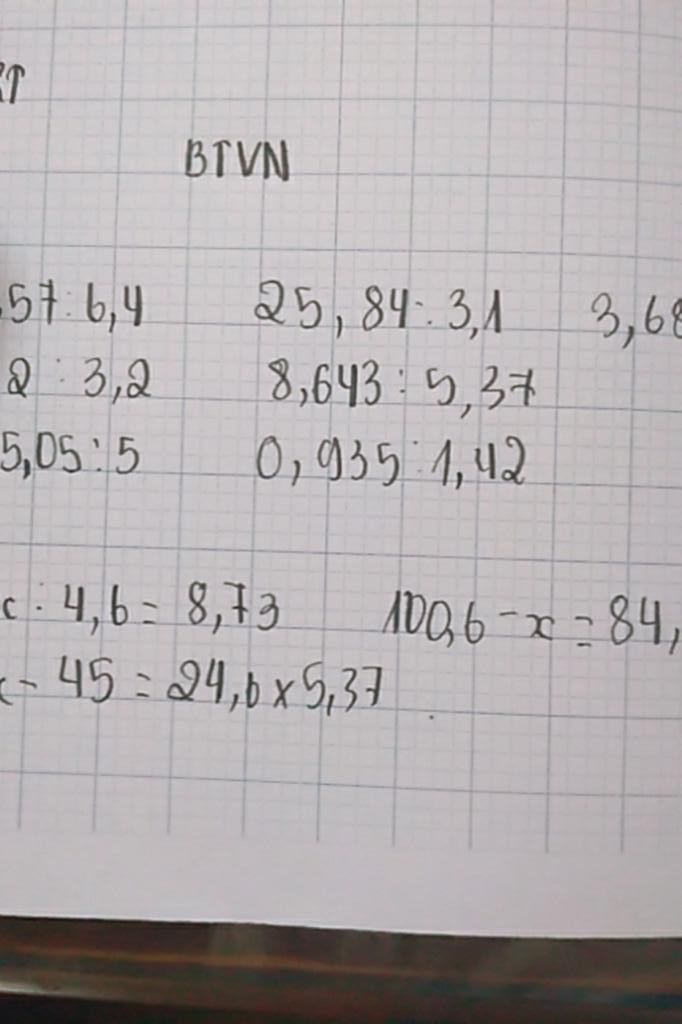 BTVN
57 : 6,4 25,84 : 3,1 3,68
2 : 3,2 8,643 : 5,37
5,05 : 5 0,935 : 1,42
: 4,6 = 8,73 100,6 - x = 84,
- 45 = 24,6 x 5,37